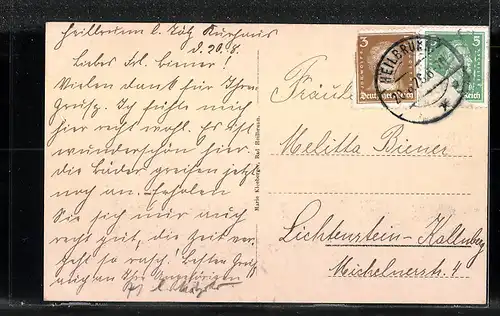 Heilbrunn b. Tölz Kurhaus
d. 20. 8.
Liebes Frl. Biener!
Vielen Dank für Ihren
Gruß. Ich fühle mich
hier recht wohl. Es ist
wunderschön hier.
Die Bäder greifen jetzt
noch an. Erholen
Sie sich nur auch
recht gut, die Zeit ver-
geht so rasch! Besten Gruß
auch an Ihre Angehörigen
Marie Klosberger, Bad Heilbrunn.
3
5
Deutsches Reich
Reich
HEILBRUNN
Fräulein
Melitta Biener
Lichtenstein-Kallnberg
Michelnerstr. 4